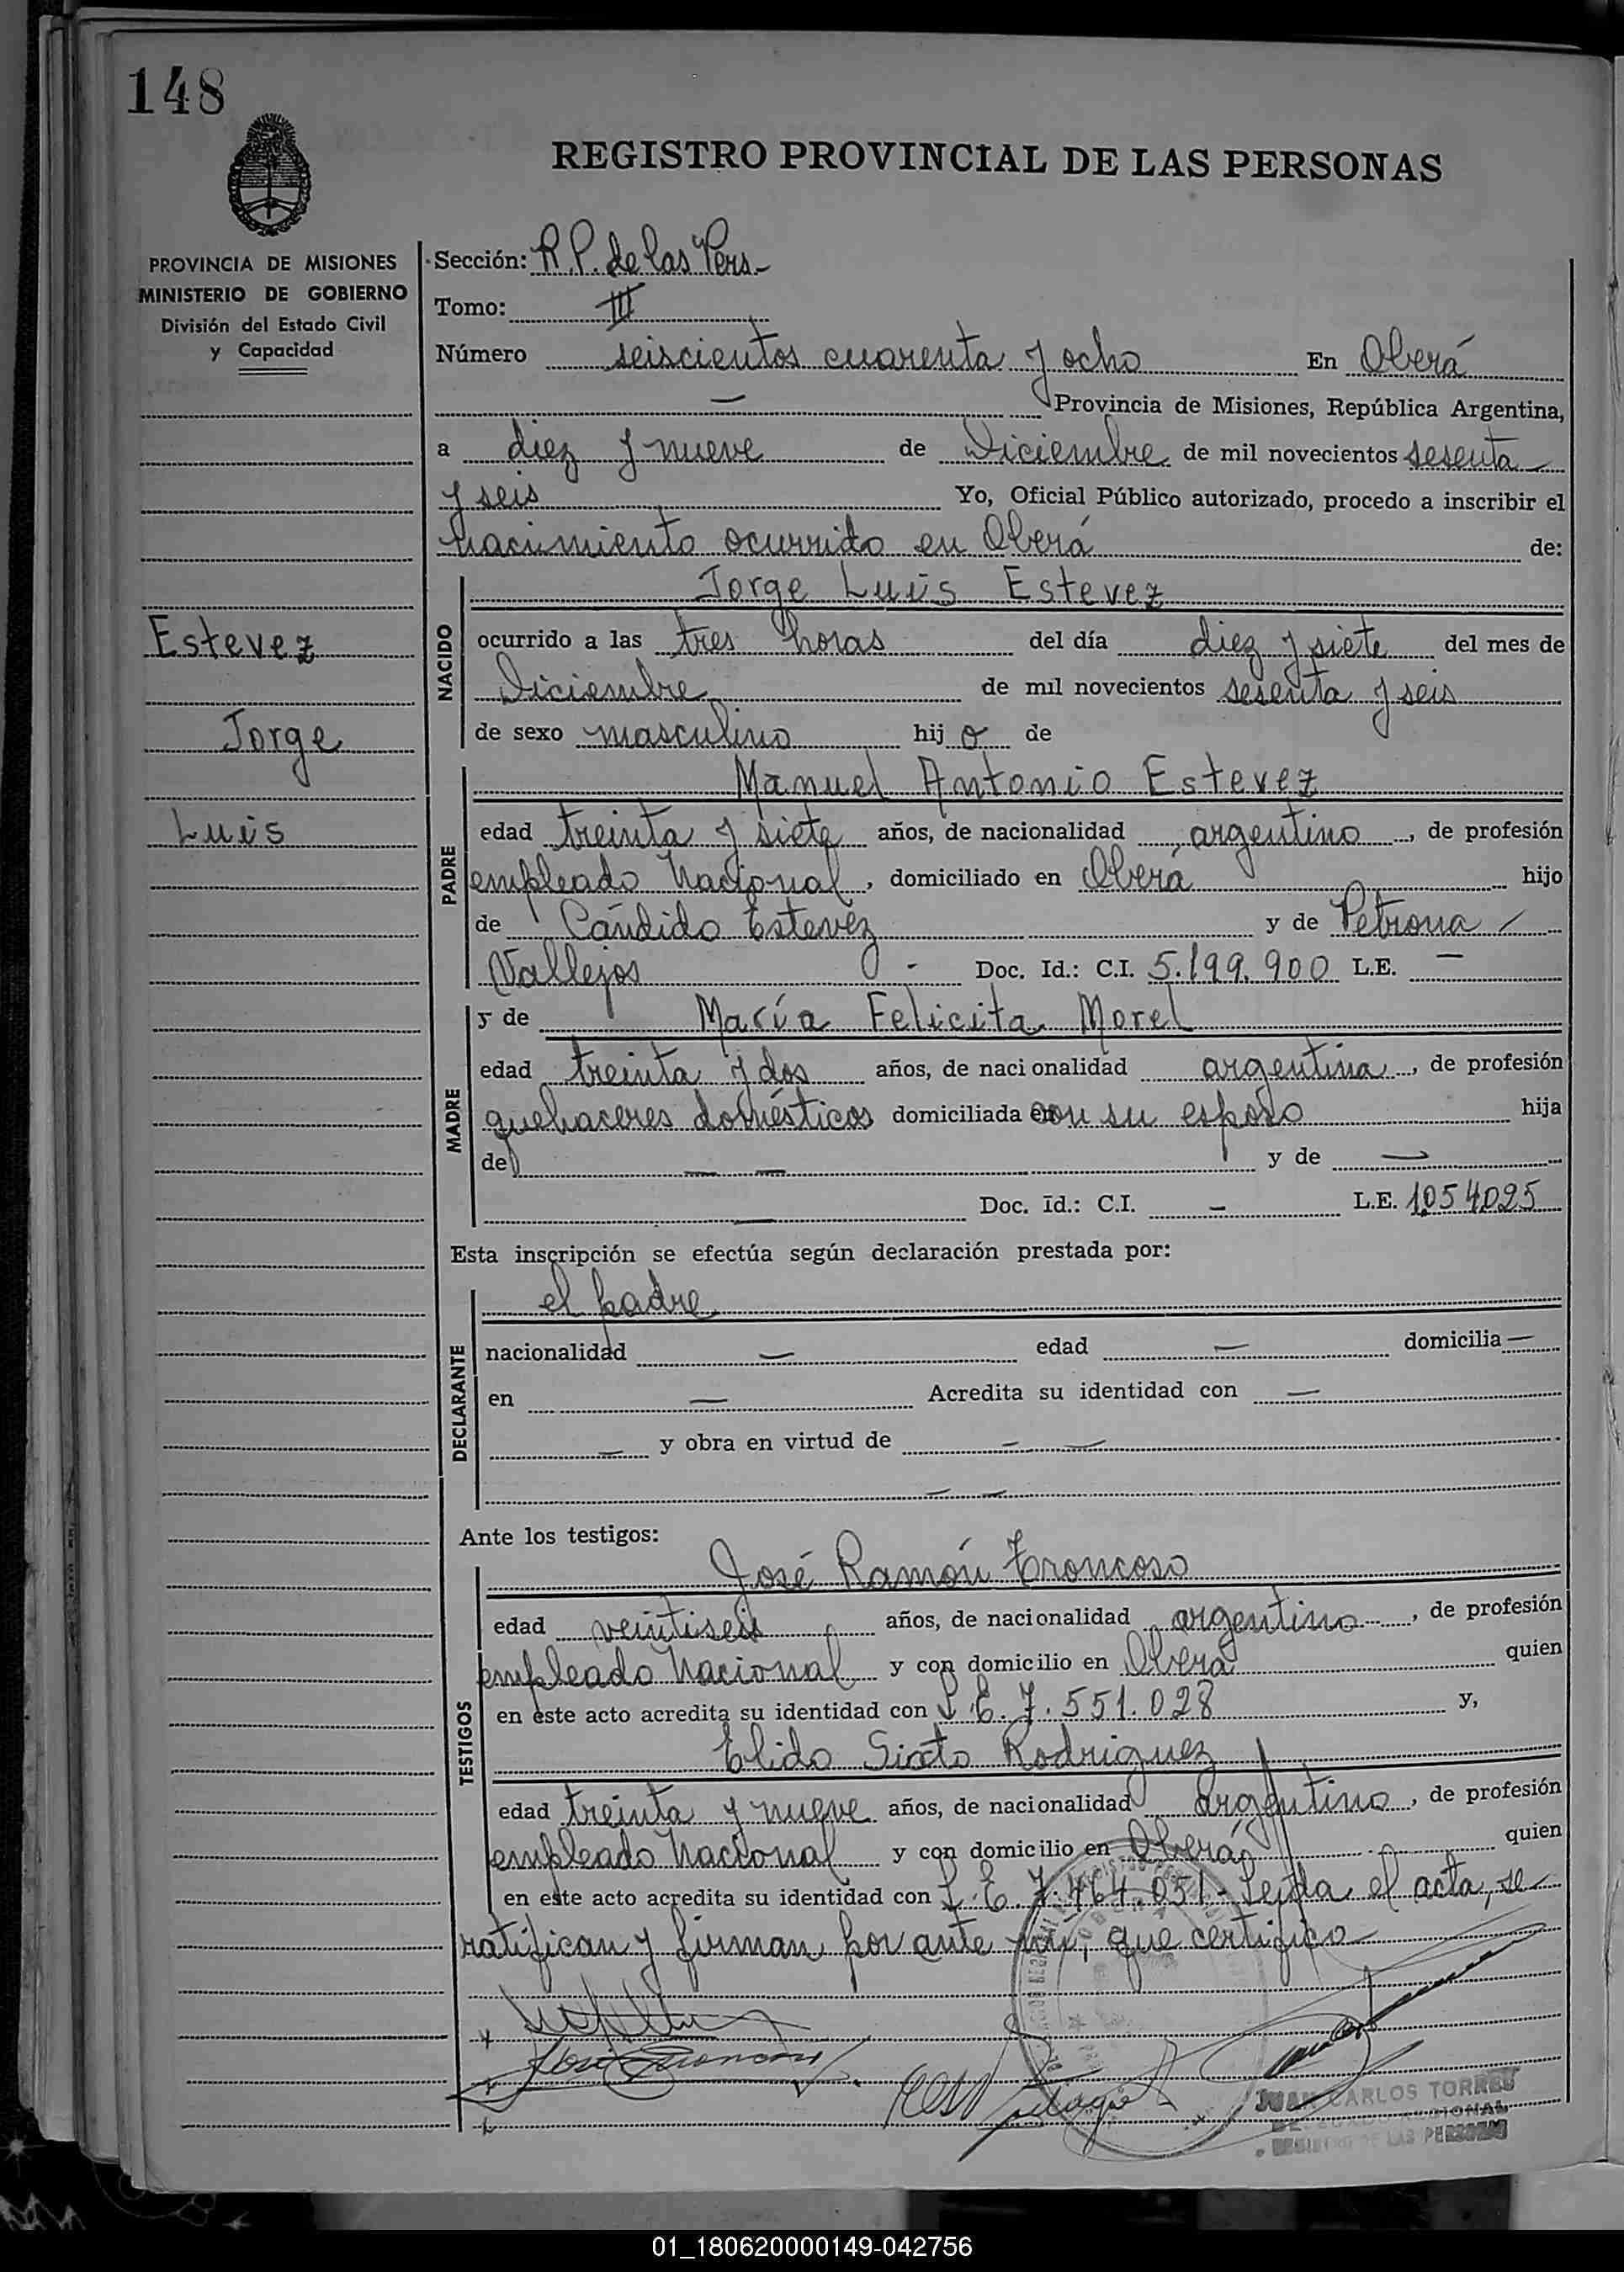 148
REGISTRO PROVINCIAL DE LAS PERSONAS
PROVINCIA DE MISIONES
MINISTERIO DE GOBIERNO
División del Estado Civil
y Capacidad
Sección: R.P. de las Pers.
Tomo: III
Número seiscientos cuarenta y ocho En Oberá
— Provincia de Misiones, República Argentina,
a diez y nueve de Diciembre de mil novecientos sesenta
y seis Yo, Oficial Público autorizado, procedo a inscribir el
nacimiento ocurrido en Oberá de:
Estevez
Jorge
Luis
NACIDO
Jorge Luis Estevez
ocurrido a las tres horas del día diez y siete del mes de
Diciembre de mil novecientos sesenta y seis
de sexo masculino hij o de
PADRE
Manuel Antonio Estevez
edad treinta y siete años, de nacionalidad argentino, de profesión
empleado Nacional, domiciliado en Oberá hijo
de Cándido Estevez y de Petrona
Vallejos - Doc. Id.: C.I. 5.199.900 L.E. —
MADRE
y de María Felicita Morel
edad treinta y dos años, de nacionalidad argentina, de profesión
quehaceres domésticos domiciliada en con su esposo hija
de — — y de —
— Doc. Id.: C.I. — L.E. 1054025
Esta inscripción se efectúa según declaración prestada por:
DECLARANTE
el padre
nacionalidad — edad — domicilia —
en — Acredita su identidad con —
— y obra en virtud de — —
— —
Ante los testigos:
TESTIGOS
José Ramón Troncoso
edad veintiseis años, de nacionalidad argentino, de profesión
empleado Nacional y con domicilio en Oberá quien
en este acto acredita su identidad con L.E. 7.551.028 y,
Elido Sixto Rodriguez
edad treinta y nueve años, de nacionalidad argentino, de profesión
empleado Nacional y con domicilio en Oberá quien
en este acto acredita su identidad con L.E. 7.464.051.- Leída el acta, se
ratifican y firman por ante mí, que certifico
José Troncoso
JUAN CARLOS TORRES
REGIONAL
REGISTRO DE LAS PERSONAS
01_180620000149-042756